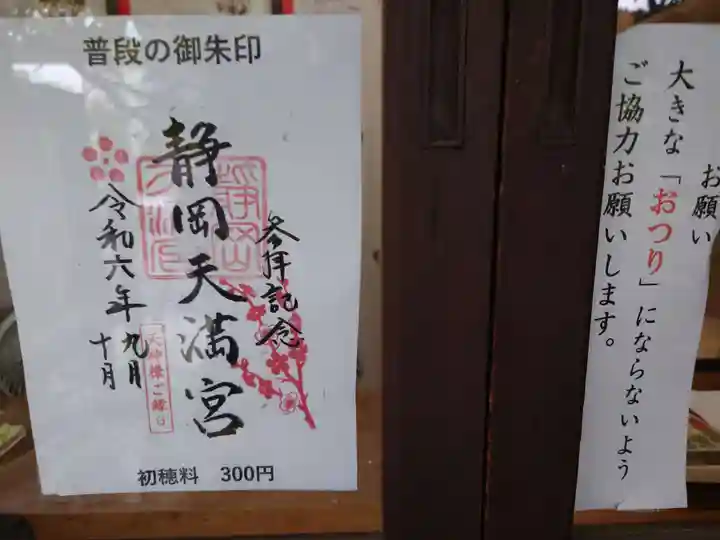 普段の御朱印
参拝記念
静岡天満宮
令和六年九月
十月
天神様ご縁日
初穂料 300円
お願い
大きな「おつり」にならないよう
ご協力お願いします。